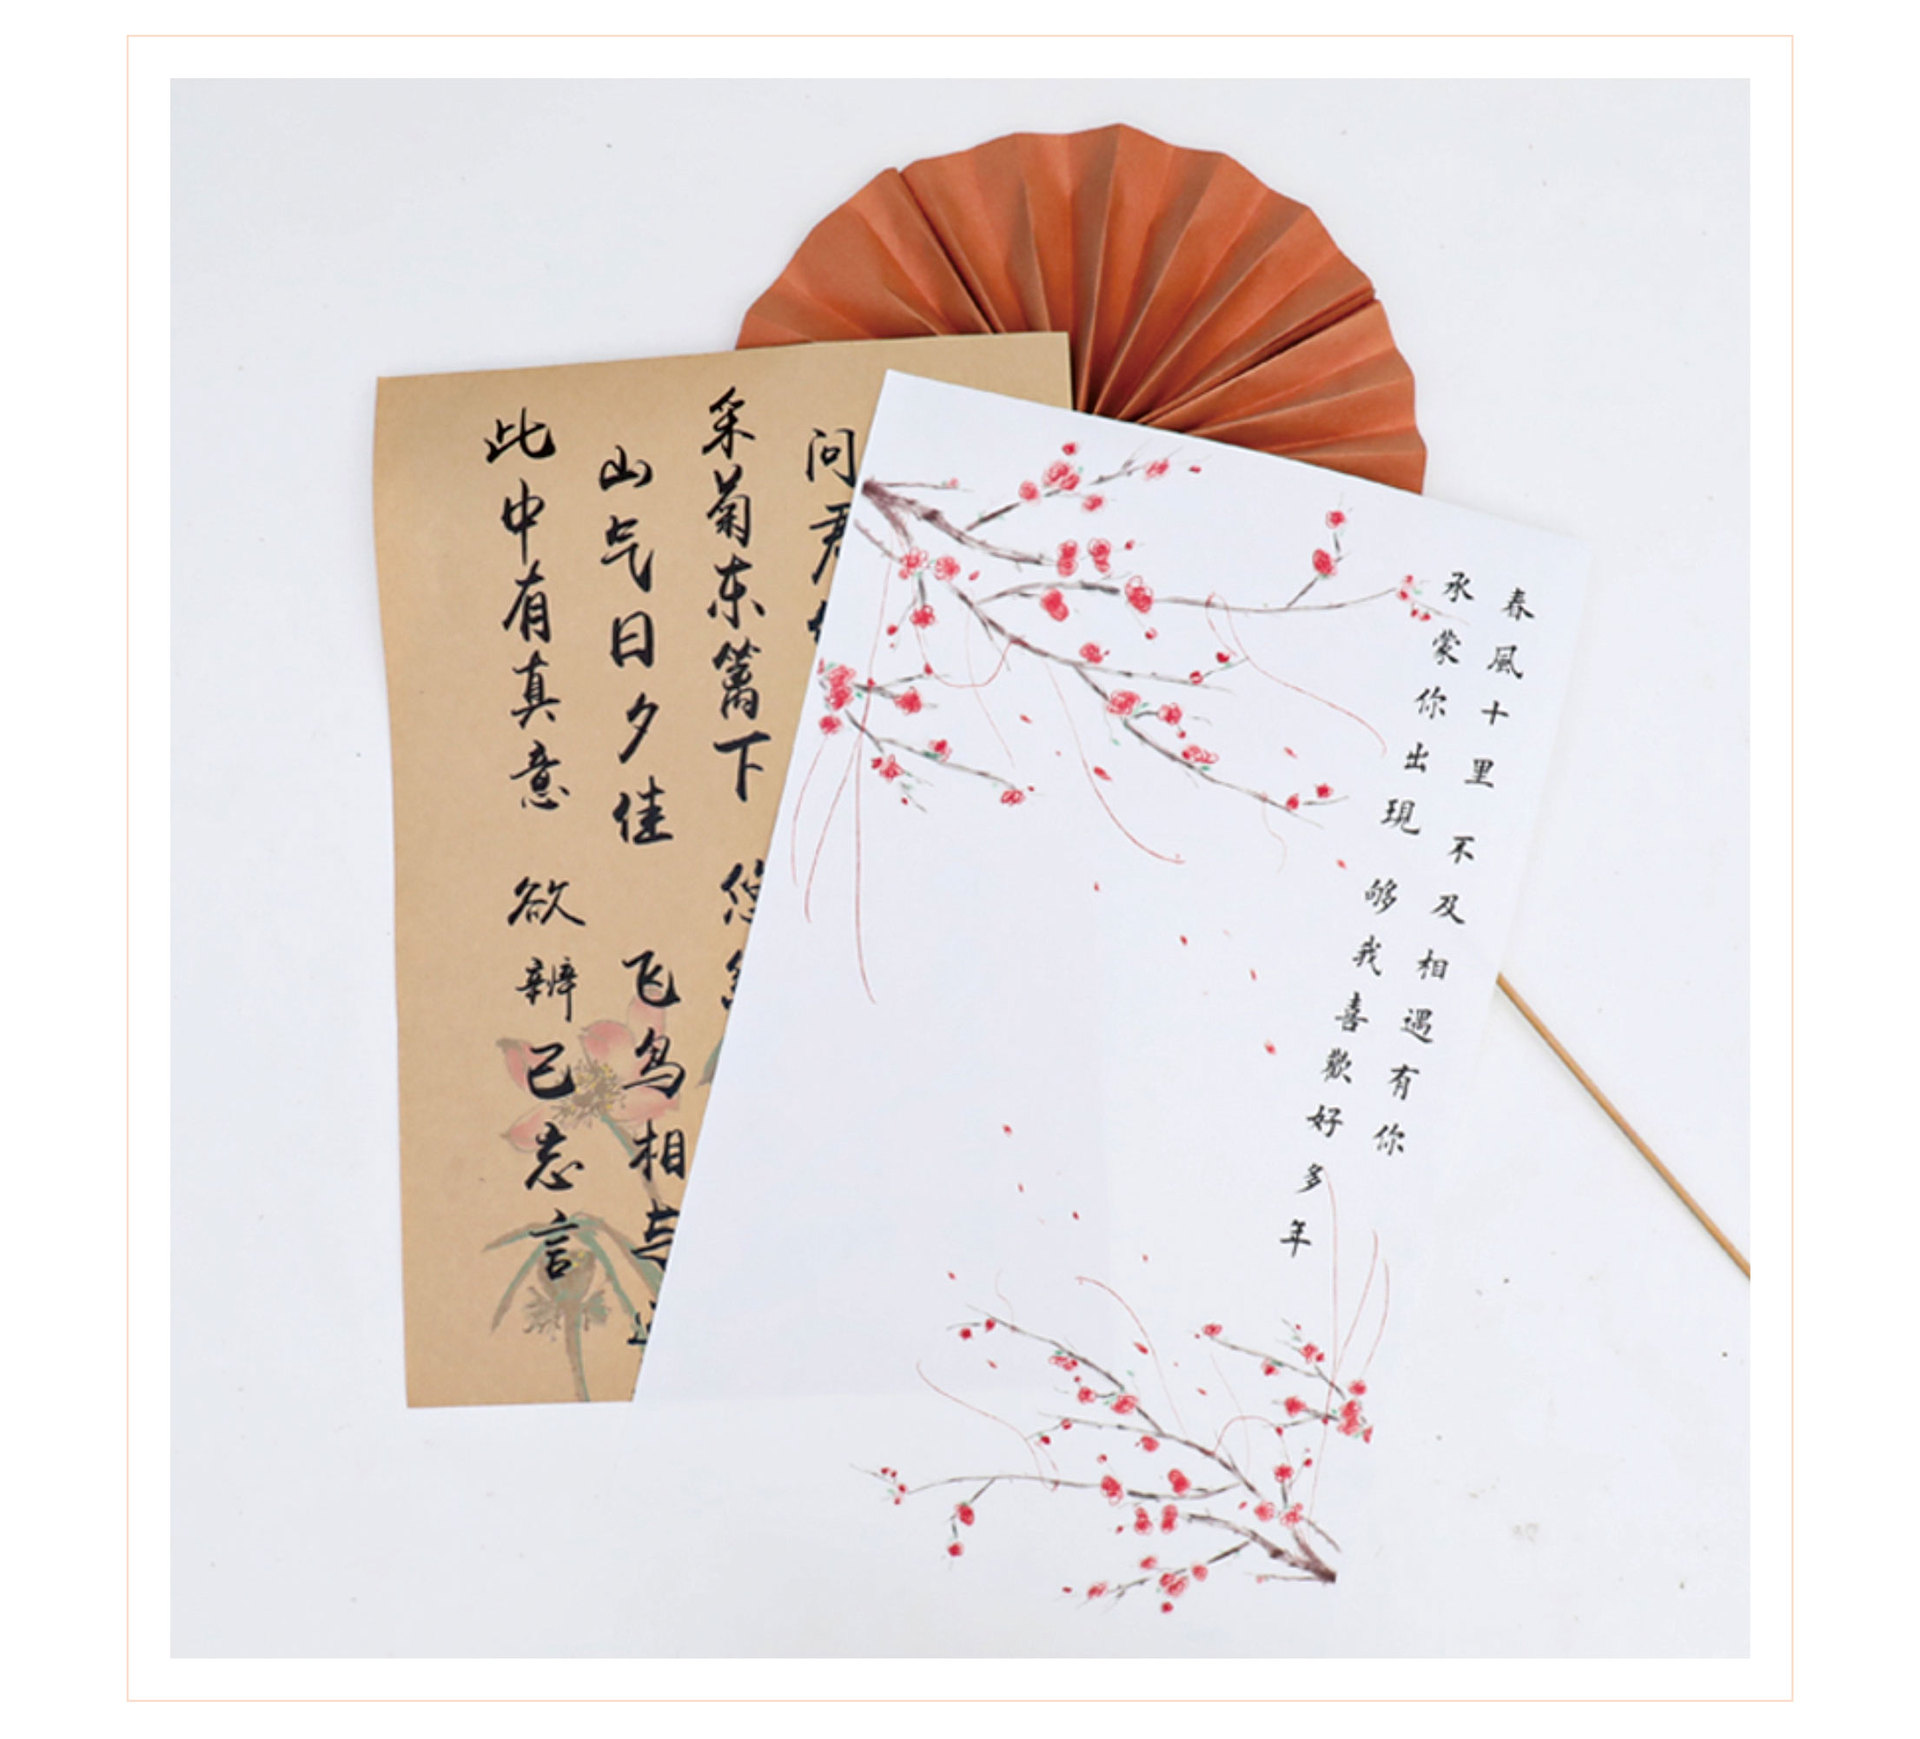 春風十里 不及相遇有你
承蒙你出現 够我喜歡好多年
问君
采菊东篱下 悠
山气日夕佳 飞鸟相与
此中有真意 欲辨已忘言